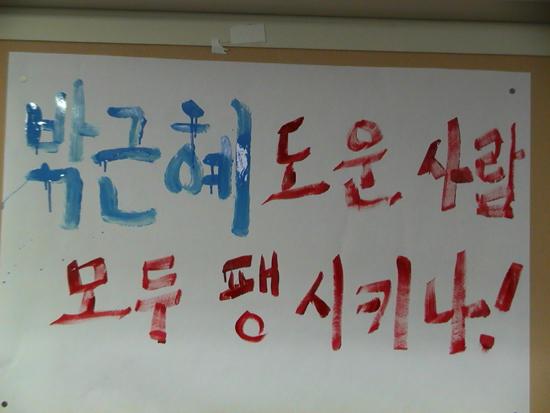 박근혜 도운 사람
모두 팽 시키나!